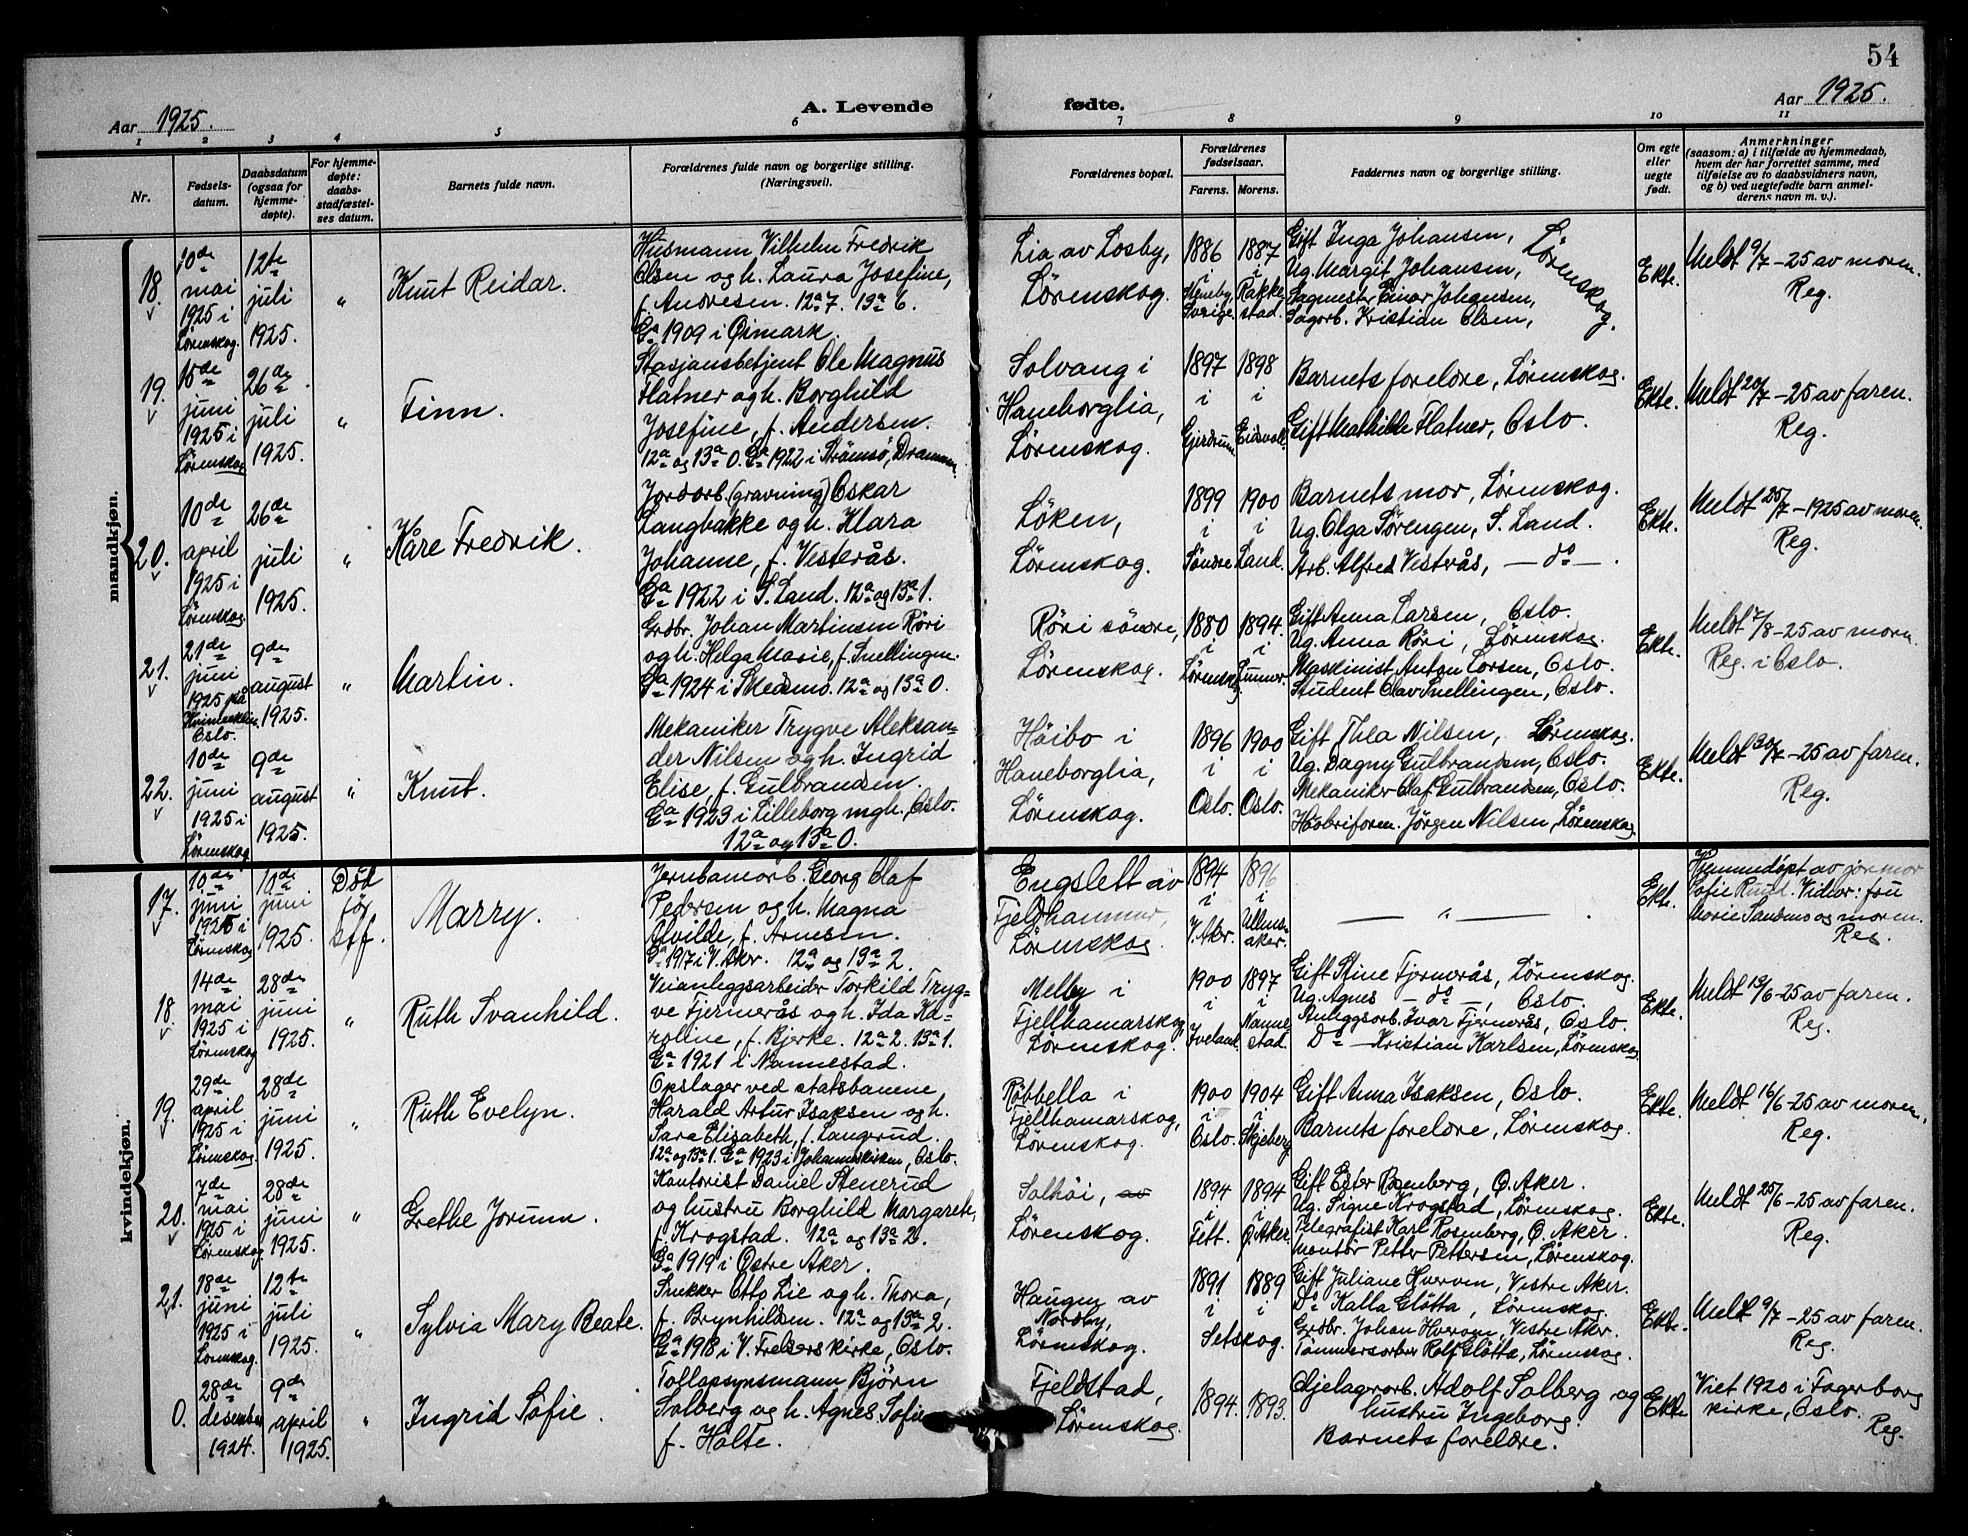 54
Aar 1925.
A. Levende
fødte.
Aar 1925.
1 2 3 4 5 6 7 8 9 10 11
Nr.
Fødsels-
datum.
Daabsdatum
(ogsaa for
hjemme-
døpte).
For hjemme-
døpte:
daabs-
stadfæstel-
ses datum.
Barnets fulde navn.
Forældrenes fulde navn og borgerlige stilling.
(Næringsvei).
Forældrenes bopæl.
Forældrenes
fødselsaar.
Farens. Morens.
Faddernes navn og borgerlige stilling.
Om egte
eller
uegte
født.
Anmerkninger
(saasom: a) i tilfælde av hjemmedaab,
hvem der har forrettet samme, med
tilføielse av to daabsvidners navn,
og b) ved uegtefødte barn anmel-
derens navn m. v.).
mandkjøn.
18.
10de
mai
1925 i
Lørenskog.
12te
juli
1925.
"
Knut Reidar.
Husmann Vilhelm Fredrik
Olsen og h. Laura Josefine,
f. Andresen. 12a 7. 13a 6.
Ga 1909 i Øimark.
Lia av Losby,
Lørenskog.
1886
i
Sverige.
1887
i
Rakke-
stad.
Gift Inga Johansen,
Ug. Margit Johansen,
Sagmester Einar Johansen,
Sagarb. Kristian Olsen,
Lørenskog.
Ekte.
Meldt 9/7 - 25 av moren.
Reg.
19.
15de
juni
1925 i
Lørenskog
26de
juli
1925.
"
Finn.
Stasjonsbetjent Ole Magnus
Flatner og h. Borghild
Josefine, f. Andersen.
12a og 13a 0. Ga 1922 i Strømsø, Drammen
Solvang i
Haneborglia,
Lørenskog.
1897
i
Gjerdrum
1898
i
Eidsvoll.
Barnets foreldre, Lørenskog.
Gift Mathilde Flatner, Oslo.
Ekte.
Meldt 20/7 - 25 av faren.
Reg.
20.
10de
april
1925 i
Lørenskog.
26de
juli
1925.
"
Kåre Fredrik.
Jordarb. (gravning) Oskar
Langbakke og h. Klara
Johanne, f. Visterås.
Ga 1922 i S. Land. 12a og 13a 1.
Løken,
Lørenskog.
1899
i
Søndre
1900
i
Land.
Barnets mor, Lørenskog.
Ug. Olga Sørengen, S. Land.
Arb. Alfred Vistrås, — do — .
Ekte.
Meldt 25/7 - 1925 av moren.
Reg.
21.
21de
juni
1925 på
Oslo.
9de
august
1925.
"
Martin.
Grdbr. Johan Martinsen Røri
og h. Helga Marie, f. Snellingen.
Ga 1924 i Skedsmo. 12a og 13a 0.
Røri søndre,
Lørenskog.
1880
i
Lørenskog
1894.
i
Lunner.
Gift Anna Larsen, Oslo.
Ug. Anna Røri, Lørenskog.
Maskinist Anton Larsen, Oslo.
Student Olav Snellingen, Oslo.
Ekte.
Meldt 7/8 - 25 av moren.
Reg. i Oslo.
22.
10de
juni
1925 i
Lørenskog
9de
august
1925.
"
Knut.
Mekaniker Trygve Aleksan-
der Nilsen og h. Ingrid
Elise, f. Gulbrandsen.
Ga 1923 i Lilleborg mgh., Oslo.
12a og 13a 0.
Høibo i
Haneborglia,
Lørenskog.
1896
i
Oslo.
1900
i
Oslo.
Gift Thea Nilsen, Lørenskog.
Ug. Dagny Gulbrandsen, Oslo.
Mekaniker Olaf Gulbrandsen, Oslo.
Jørgen Nilsen, Lørenskog.
Ekte.
Meldt 30/7 - 25 av faren.
Reg.
kvindekjøn.
17.
10de
juni
1925 i
Lørenskog
10de
juni
1925.
Död
før
stf.
Marry.
Jernbanearb. Georg Olaf
Pedersen og h. Magna
Alvilde, f. Arnesen.
Ga 1917 i V. Aker. 12a og 13a 2.
Engslett av
Fjeldhammer,
Lørenskog.
1894
i
V. Aker.
1896
i
Ullens-
aker.
— " — .
Ekte.
Hjemmedøpt av jormor
Sofie Ruud. Vidner: fru
Marie Sandmo og moren.
Reg.
18.
14de
mai
1925 i
Lørenskog
28de
juni
1925.
"
Ruth Svanhild.
Veianleggsarbeider Torkild Tryg-
ve Fjermerås og h. Ida Ka-
roline, f. Bjerke. 12a 2. 13a 1.
Ga 1921 i Nannestad.
Melby i
Fjellhamarskog,
Lørenskog.
1900
i
Iveland.
1897
i
Nanne-
stad.
Gift Stine Fjermerås, Lørenskog.
Ug. Agnes — do —, Oslo.
Anleggsarb. Ivar Fjermerås, Oslo.
Do — Kristian Karlsen, Lørenskog
Ekte.
Meldt 13/6 - 25 av faren.
Reg.
19.
29de
april
1925 i
Lørenskog.
28de
juni
1925.
"
Ruth Evelyn.
Opslager ved statsbanene
Harald Artur Isaksen og h.
Sara Elisabeth, f. Langerud.
12a og 13a 1. Ga 1923 i Johanneskirken, Oslo.
Røbbella i
Fjellhamarskog,
Lørenskog.
1900
i
Oslo.
1904
i
Skjeberg
Gift Anna Isaksen, Oslo.
Barnets foreldre, Lørenskog.
Ekte.
Meldt 16/6 - 25 av moren.
Reg.
20.
7de
mai
1925 i
Lørenskog
28de
juni
1925.
"
Grethe Jorunn.
Kontorist Daniel Stenerud
og hustru Borghild Margarethe,
f. Krogstad. 12a og 13a 2.
Ga 1919 i Østre Aker.
Solhöi, av
Lørenskog.
1894
i
Fett.
1894
i
Ø. Aker.
Gift Ester Rosenberg, Ø. Aker.
Ug. Signe Krogstad, Lørenskog.
Telegrafist Karl Rosenberg, Ø. Aker.
Montør Petter Pettersen, Lørenskog.
Ekte.
Meldt 25/6 - 25 av faren.
Reg.
21.
18de
juni
1925 i
Lørenskog.
12te
juli
1925.
"
Sylvia Mary Beate.
Snekker Otto Lie og h. Thora,
f. Brynhildsen. 12a og 13a 2.
Ga 1918 i V. Frelsers kirke, Oslo.
Haugen av
Nordby,
Lørenskog.
1891
i
1889
i
Setskog.
Gift Juliane Hverven, Vestre Aker.
Do Kalla Gløtta, Lørenskog.
Grdbr. Johan Hverven, Vestre Aker.
Rolf Gløtta, Lørenskog.
Ekte.
Meldt 9/7 - 25 av faren.
Reg.
0.
28de
desember
1924.
9de
april
1925.
"
Ingrid Sofie.
Tollopsynsmann Björn
Solberg og h. Agnes Sofie
f. Holte.
Fjeldstad,
Lørenskog.
1894.
1893.
Oljelagerarb. Adolf Solberg og
hustru Ingeborg.
Barnets foreldre.
Ekte
Viet 1920 i Fagerborg
kirke, Oslo.
Reg.